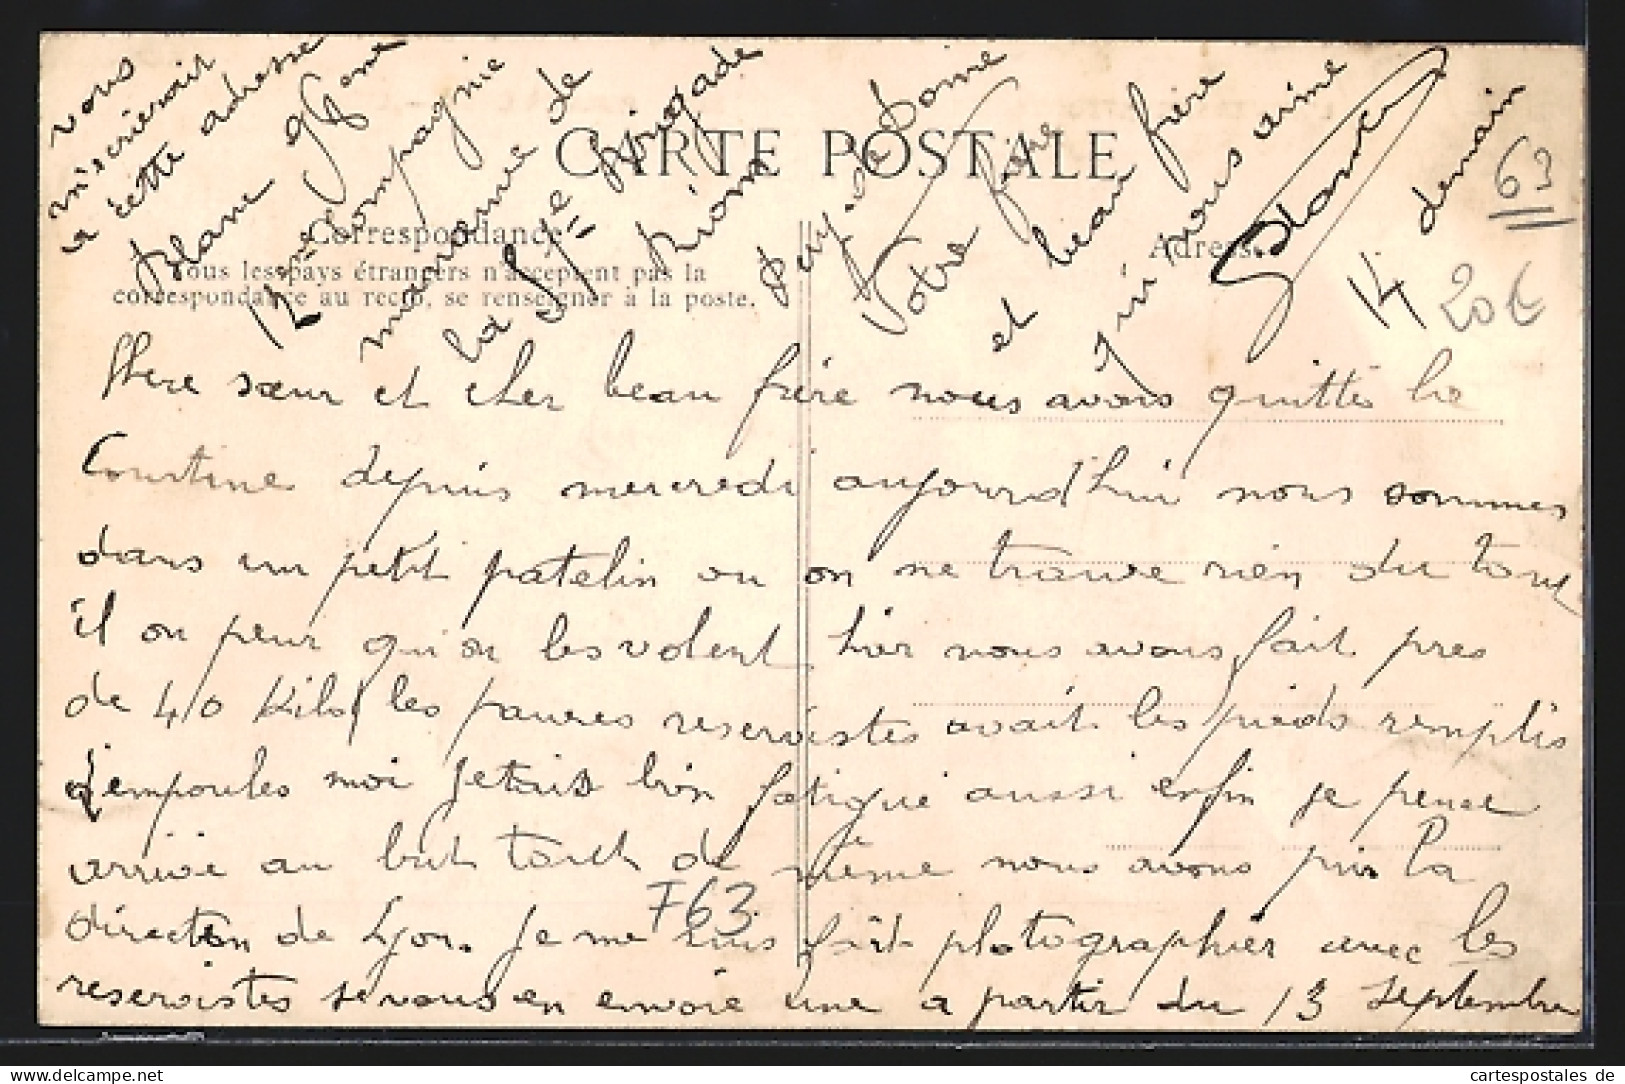 CARTE POSTALE
Correspondance
Tous les pays étrangers n'acceptent pas la
correspondance au recto, se renseigner à la poste.
Adresse
63
20€
Chere sœur et cher beau frère nous avons quittés la
Courtine depuis mercredi aujourd'hui nous sommes
dans un petit patelin ou on ne trouve rien du tout
il on peur qu'on les volent hier nous avons fait pres
de 40 Kils les pauvres reservistes avait les pieds remplis
d'empoules moi jetais bien fatigué aussi enfin je pense
arrivé au but tout de même nous avons pris la
direction de Lyon. Je me suis fait photographier avec les
F63.
reservistes je vous en envoie une a partir du 13 Septembre
vous
m'écrierait
a cette adresse
Blanc 96eme
12eme compagnie
manœuvre de
la Brigade
Riom
Puy-de Dome
Votre frère
et beau frère
qui vous aime
14 demain
cartespostales de